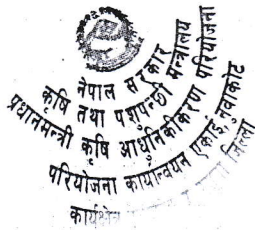 नेपाल सरकार
कृषि तथा पशुपन्छी मन्त्रालय
प्रधानमन्त्री कृषि आधुनिकीकरण परियोजना
परियोजना कार्यान्वयन एकाई, नुवाकोट
कार्यक्षेत्र जिल्ला